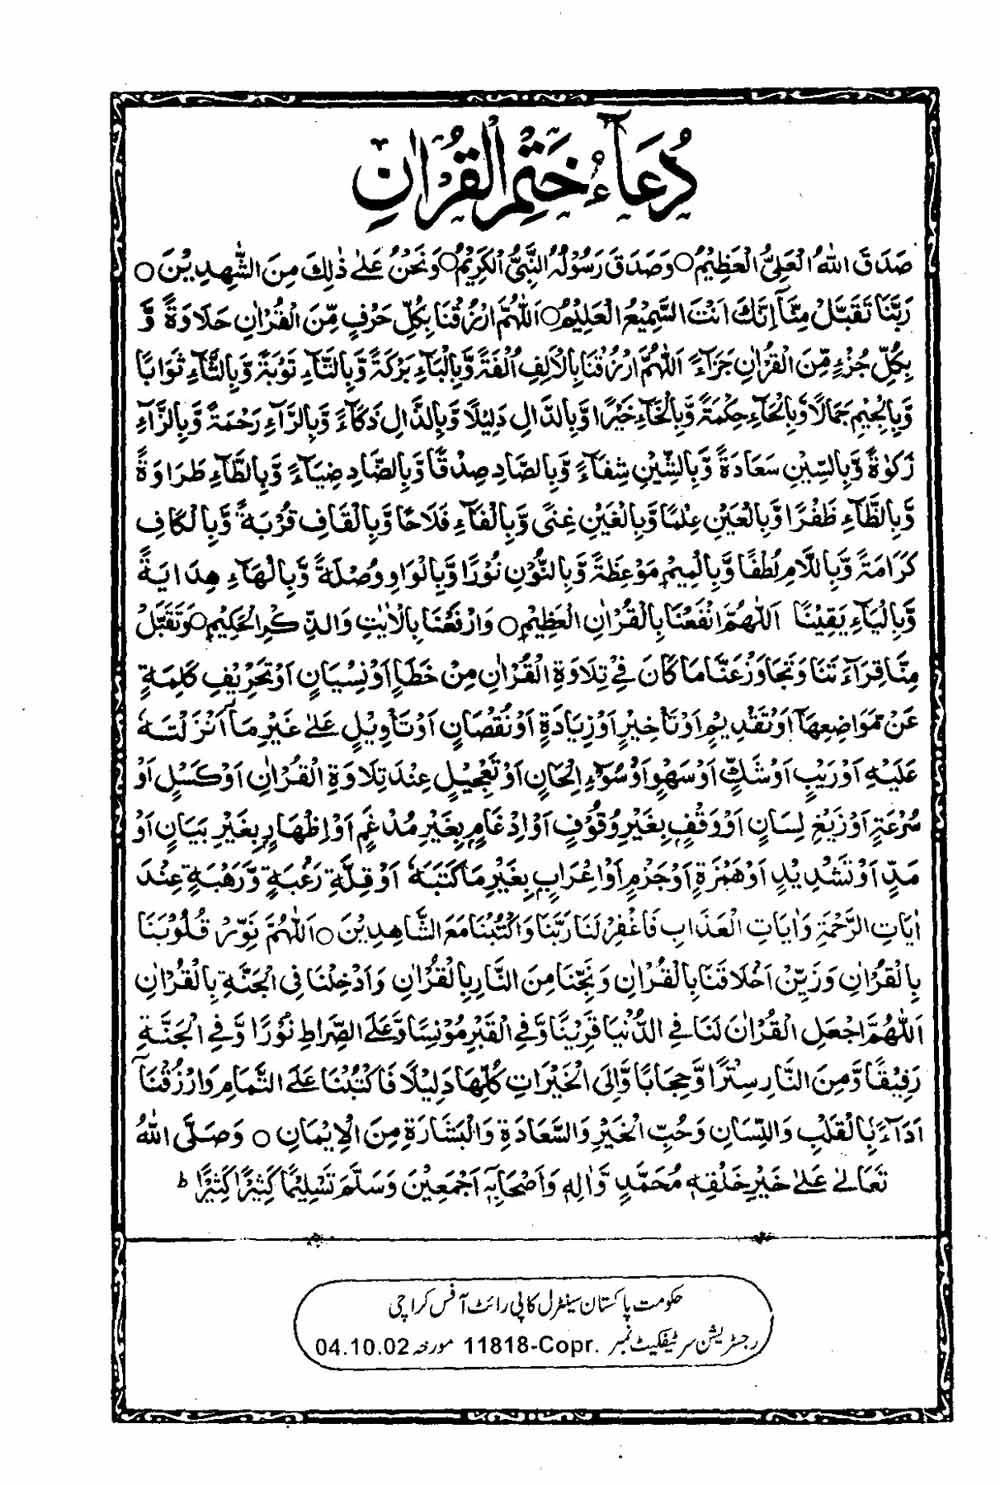 دُعَآءُ خَتْمِ الْقُرْاٰنِ
صَدَقَ اللّٰهُ الْعَلِیُّ الْعَظِیْمُ○ وَصَدَقَ رَسُوْلُهُ النَّبِیُّ الْکَرِیْمُ○ وَنَحْنُ عَلٰی ذٰلِکَ مِنَ الشّٰهِدِیْنَ○
رَبَّنَا تَقَبَّلْ مِنَّآ اِنَّکَ اَنْتَ السَّمِیْعُ الْعَلِیْمُ○ اَللّٰهُمَّ ارْزُقْنَا بِکُلِّ حَرْفٍ مِّنَ الْقُرْاٰنِ حَلَاوَةً وَّ
بِکُلِّ جُزْءٍ مِّنَ الْقُرْاٰنِ جَزَآءً اَللّٰهُمَّ ارْزُقْنَا بِالْاَلِفِ اُلْفَةً وَّبِالْبَآءِ بَرَکَةً وَّبِالتَّآءِ تَوْبَةً وَّبِالثَّآءِ ثَوَابًا
وَّبِالْجِیْمِ جَمَالًا وَّبِالْحَآءِ حِکْمَةً وَّبِالْخَآءِ خَیْرًا وَّبِالدَّالِ دَلِیْلًا وَّبِالذَّالِ ذَکَآءً وَّبِالرَّآءِ رَحْمَةً وَّبِالزَّآءِ
زَکٰوةً وَّبِالسِّیْنِ سَعَادَةً وَّبِالشِّیْنِ شِفَآءً وَّبِالصَّادِ صِدْقًا وَّبِالضَّادِ ضِیَآءً وَّبِالطَّآءِ طَرَاوَةً
وَّبِالظَّآءِ ظَفْرًا وَّبِالْعَیْنِ عِلْمًا وَّبِالْغَیْنِ غِنًی وَّبِالْفَآءِ فَلَاحًا وَّبِالْقَافِ قُرْبَةً وَّبِالْکَافِ
کَرَامَةً وَّبِاللَّامِ لُطْفًا وَّبِالْمِیْمِ مَوْعِظَةً وَّبِالنُّوْنِ نُوْرًا وَّبِالْوَاوِ وُصْلَةً وَّبِالْهَآءِ هِدَایَةً
وَّبِالْیَآءِ یَقِیْنًا اَللّٰهُمَّ انْفَعْنَا بِالْقُرْاٰنِ الْعَظِیْمِ○ وَارْفَعْنَا بِالْاٰیٰتِ وَالذِّکْرِ الْحَکِیْمِ○ وَتَقَبَّلْ
مِنَّا قِرَآءَتَنَا وَتَجَاوَزْ عَنَّا مَا کَانَ فِیْ تِلَاوَةِ الْقُرْاٰنِ مِنْ خَطَاٍ اَوْ نِسْیَانٍ اَوْ تَحْرِیْفِ کَلِمَةٍ
عَنْ مَّوَاضِعِهَا اَوْ تَقْدِیْمٍ اَوْ تَاْخِیْرٍ اَوْ زِیَادَةٍ اَوْ نُقْصَانٍ اَوْ تَاْوِیْلٍ عَلٰی غَیْرِ مَآ اَنْزَلْتَهٗ
عَلَیْهِ اَوْ رَیْبٍ اَوْ شَکٍّ اَوْ سَهْوٍ اَوْ سُوْٓءِ اِلْحَانٍ اَوْ تَعْجِیْلٍ عِنْدَ تِلَاوَةِ الْقُرْاٰنِ اَوْ کَسَلٍ اَوْ
سُرْعَةٍ اَوْ زَیْغِ لِسَانٍ اَوْ وَقْفٍ بِغَیْرِ وُقُوْفٍ اَوْ اِدْغَامٍ بِغَیْرِ مُدْغَمٍ اَوْ اِظْهَارٍ بِغَیْرِ بَیَانٍ اَوْ
مَدٍّ اَوْ تَشْدِیْدٍ اَوْ هَمْزَةٍ اَوْ جَزْمٍ اَوْ اِعْرَابٍ بِغَیْرِ مَا کَتَبَهٗ اَوْ قِلَّةِ رَغْبَةٍ وَّرَهْبَةٍ عِنْدَ
اٰیَاتِ الرَّحْمَةِ وَاٰیَاتِ الْعَذَابِ فَاغْفِرْ لَنَا رَبَّنَا وَاکْتُبْنَا مَعَ الشَّاهِدِیْنَ○ اَللّٰهُمَّ نَوِّرْ قُلُوْبَنَا
بِالْقُرْاٰنِ وَزَیِّنْ اَخْلَاقَنَا بِالْقُرْاٰنِ وَنَجِّنَا مِنَ النَّارِ بِالْقُرْاٰنِ وَاَدْخِلْنَا فِی الْجَنَّةِ بِالْقُرْاٰنِ
اَللّٰهُمَّ اجْعَلِ الْقُرْاٰنَ لَنَا فِی الدُّنْیَا قَرِیْنًا وَّفِی الْقَبْرِ مُوْنِسًا وَّعَلَی الصِّرَاطِ نُوْرًا وَّفِی الْجَنَّةِ
رَفِیْقًا وَّمِنَ النَّارِ سِتْرًا وَّحِجَابًا وَّاِلَی الْخَیْرَاتِ کُلِّهَا دَلِیْلًا فَاکْتُبْنَا عَلَی التَّمَامِ وَارْزُقْنَآ
اَدَآءً بِالْقَلْبِ وَاللِّسَانِ وَحُبِّ الْخَیْرِ وَالسَّعَادَةِ وَالْبَشَارَةِ مِنَ الْاِیْمَانِ○ وَصَلَّی اللّٰهُ
تَعَالٰی عَلٰی خَیْرِ خَلْقِهٖ مُحَمَّدٍ وَّاٰلِهٖ وَاَصْحَابِهٖٓ اَجْمَعِیْنَ وَسَلَّمَ تَسْلِیْمًا کَثِیْرًا کَثِیْرًا ط
حکومت پاکستان سینٹرل کاپی رائٹ آفس کراچی
رجسٹریشن سرٹیفکیٹ نمبر 11818-Copr. مورخہ 04.10.02